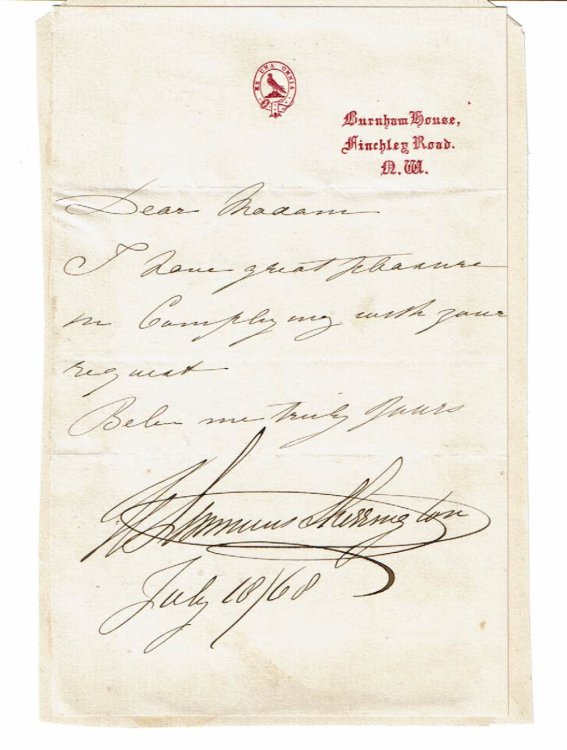 EX UNA
Burnham House,
Finchley Road.
N.W.
Dear Madam
I have great pleasure
in Complying with your
request
me truly Yours
H Lemmens Sherrington
July 18/68